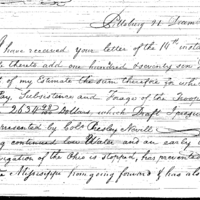 Pittsburg 21 Decemb
I have received your letter of the 14th instan
thereto add one hundred & seventy seven
of my Estimate the sum therefore for whi
Pay, Subsistence and Forage of the Troops
2634 Dollars, which Draft I pres
presented by Colo. Presley Nevill
continued low Water and an early
igation of the Ohio is stopped, has prevented
Mississipi from going forward & has also